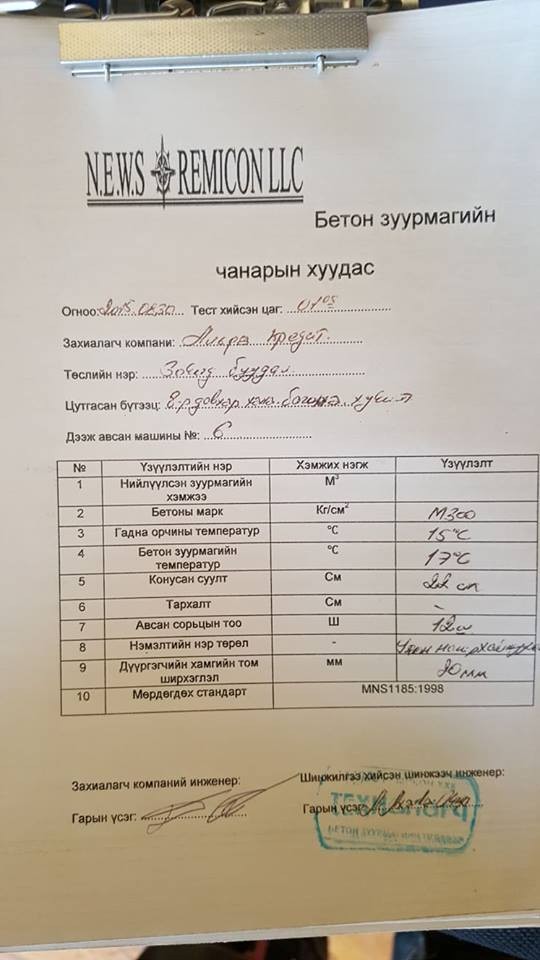 N.E.W.S REMICON LLC
Бетон зуурмагийн
чанарын хуудас
Огноо: 2015.08.30 Тест хийсэн цаг: 01:05
Захиалагч компани: Микро Кредит.
Төслийн нэр: Зочид буудал
Цутгасан бүтээц: багана
Дээж авсан машины №: 6
№ Үзүүлэлтийн нэр Хэмжих нэгж Үзүүлэлт
1 Нийлүүлсэн зуурмагийн хэмжээ М³
2 Бетоны марк Кг/см² М300
3 Гадна орчины температур °С 15°С
4 Бетон зуурмагийн температур °С 17°С
5 Конусан суулт См 22 см
6 Тархалт См -
7 Авсан сорьцын тоо Ш 12ш
8 Нэмэлтийн нэр төрөл -
9 Дүүргэгчийн хамгийн том ширхэглэл мм 20мм
10 Мөрдөгдөх стандарт MNS1185:1998
Захиалагч компаний инженер: Шинжилгээ хийсэн шинжээч инженер:
Гарын үсэг: Гарын үсэг: